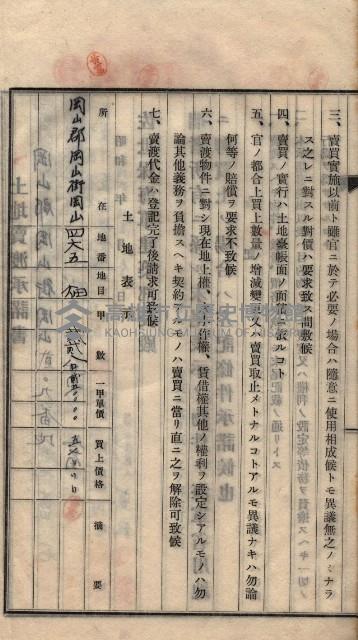 三、賣買實施以前ト雖官ニ於テ必要ノ場合ハ隨意ニ使用相成候トモ異議無之ノミナラ
ス之レニ對スル對價ハ要求不致ス間敷候
四、賣買ノ實行ハ土地臺帳面ノ面積ニ依ルコト
五、官ノ都合上買上數量ノ增減變更又ハ賣買取止メトナルコトアルモ異議ナキハ勿論
何等ノ賠償ヲ要求不致候
六、賣渡物件ニ對シ現在地上權、永小作權、賃借權其他ノ權利ヲ設定シアルモノハ勿
論其他義務ヲ負擔スヘキ契約アルモノハ賣買ニ當リ直ニ之ヲ解除可致候
七、賣渡代金ハ登記完了後請求可致候
土地表示
所在 地番 地目 甲數 一甲單價 買上價格 摘要
岡山郡岡山街岡山 四六五 畑
高雄市立歷史博物館
KAOHSIUNG MUSEUM OF HISTORY